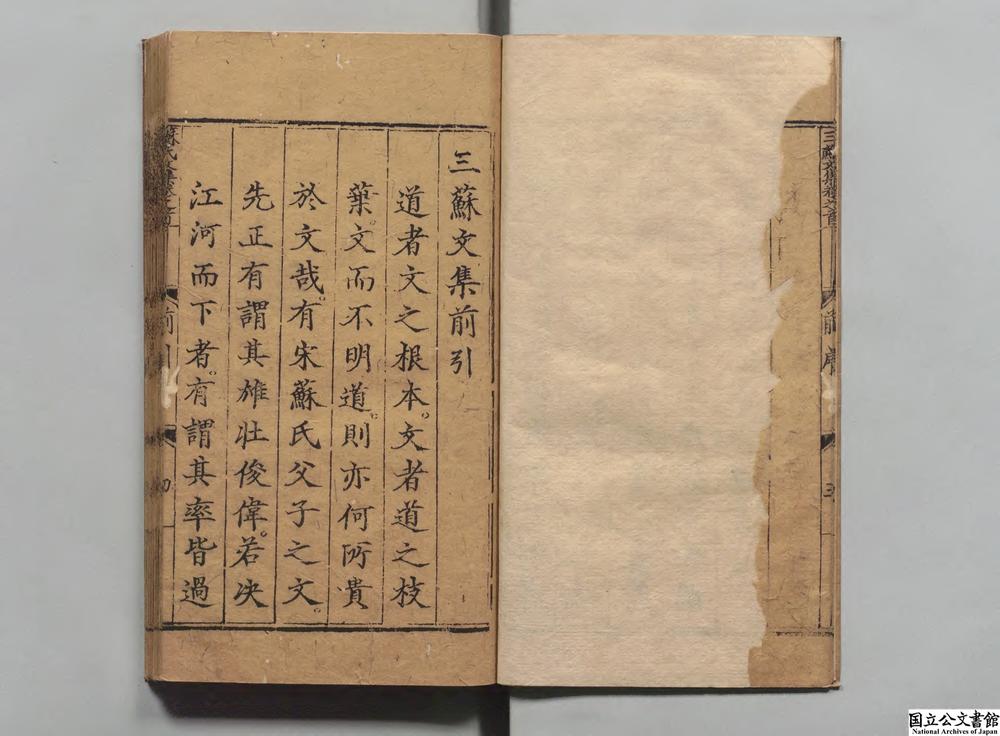 三蘇文集卷之首
前序
三蘇文集前引
道者文之根本。文者道之枝
葉。文而不明道。則亦何所貴
於文哉。有宋蘇氏父子之文。
先正有謂其雄壯俊偉。若决
江河而下者。有謂其率皆過
前引
国立公文書館
National Archives of Japan